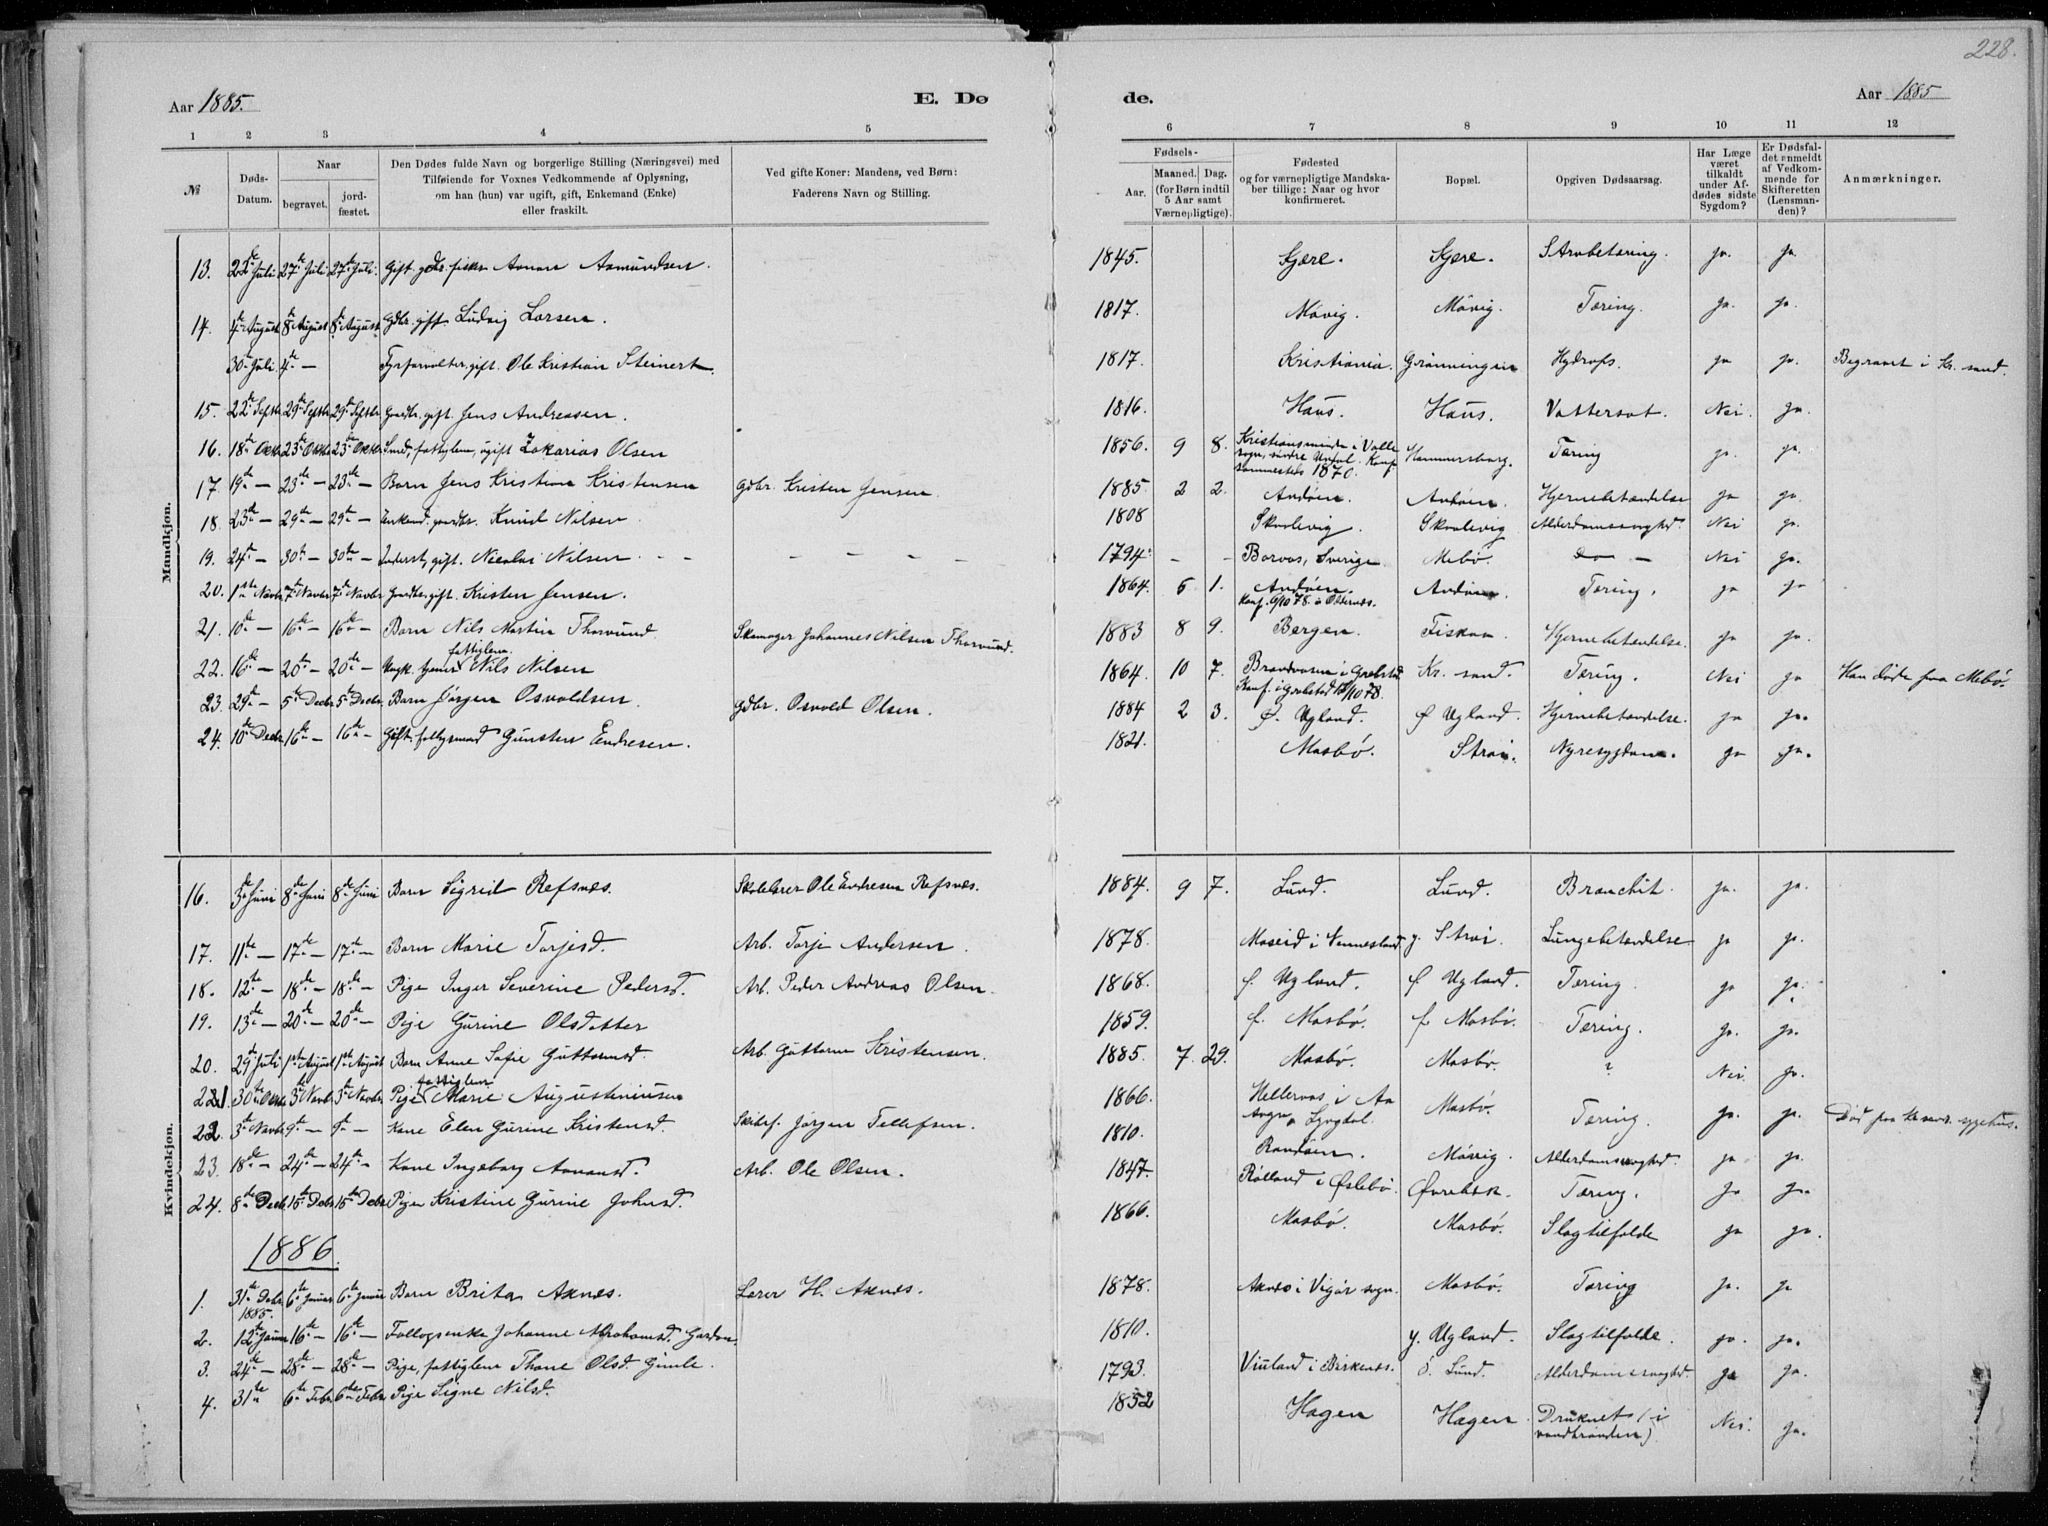 228.
Aar 1885. E. Dø de. Aar 1885
1 2 3 4 5 6 7 8 9 10 11 12
№ Døds-Datum. Naar begravet. jordfæstet. Den Dødes fulde Navn og borgerlige Stilling (Næringsvei) med Tilføiende for Voxnes Vedkommende af Oplysning, om han (hun) var ugift, gift, Enkemand (Enke) eller fraskilt. Ved gifte Koner: Mandens, ved Børn: Faderens Navn og Stilling. Fødsels- Aar. Maaned. Dag. (for Børn indtil 5 Aar samt Værnepligtige). Fødested og for værnepligtige Mandskaber tillige: Naar og hvor konfirmeret. Bopæl. Opgiven Dødsaarsag. Har Læge været tilkaldt under Afdødes sidste Sygdom? Er Dødsfaldet anmeldt af Vedkommende for Skifteretten (Lensmanden)? Anmærkninger.
Mandkjøn.
13. 22de Juli 27de Juli 27de Juli. Gift gdbr. fisker Aanen Asmundsen. 1845. Kjære. Kjære. Strubetæring. ja. ja.
14. 4de August 8de August 8de August Gdbr. gift Ludvig Larsen. 1817. Møvig. Møvig. Tæring. ja. ja.
30te Juli 4de — Fyrforvalter, gift. Ole Kristian Steinert. 1817. Kristiania. Grønningen Hydrops. ja ja. Begravet i Kr. sand.
15. 22de Septbr 29de Septbr 29de Septbr Gaardbr. gift. Jens Andreassen. 1816. Haus. Haus. Vattersot. Nei. ja.
16. 18de Oktbr 23de Oktbr 23de Oktbr Smed, fattiglem, ugift Zakarias Olsen 1856. 9 8. Kristiansminde i Valle sogn, søndre Undal. Konf. sammesteds 1870. Hammersborg. Tæring ja. ja.
17. 19de — 23de — 23de — Barn Jens Kristian Kristensen Gdbr. Kristen Jensen. 1885. 2 2. Andøen. Andøen. Hjernebetændelse ja ja.
18. 23de — 29de — 29de — Enkemd. gaardbr. Knud Nilsen. 1808 Skaalevig. Skaalevig Alderdomssvaghed Nei ja.
19. 24de — 30te — 30te — Inderst, gift. Nicolai Nilsen — — — — 1794. — — Boraas, Sverige. Mebø. do — Nei ja.
20. 1ste Novbr 7de Novbr 7de Novbr Gaardbr. gift. Kristen Jensen. 1864. 6 1. Andøen. Konf. 6/10 78. i Oddernes. Andøen. Tæring. ja ja
21. 10de — 16de — 16de — Barn Nils Martin Thorsund. Skomager Johannes Nilsen Thorsund. 1883 8 9. Bergen. Fiskaa. Hjernebetændelse. ja ja.
22. 16de — 20de — 20de — Ungk. tjener fattiglem. Nils Nilsen 1864. 10 7. Brandvasen i Grebstad Konf. i Grebstad /10 78. Kr. sand. Tæring. Nei ja Han døde paa Mebø.
23. 29de — 5te Decbr 5te Decbr. Barn Jørgen Osvoldsen. Gdbr. Osvold Olsen. 1884 2 3. Ø. Ugland. Ø Ugland. Hjernebetændelse. ja ja.
24. 10de Decbr 16de — 16de — Gift. fattigmand Gunsten Endresen. 1821. Mosbø. Strai. Nyresygdom. ja ja.
Kvindekjøn.
16. 3de Juni 8de Juni 8de Juni Barn Sigrid Refsnæs. Skolelærer Ole Endresen Refsnæs. 1884. 9 7. Lund. Lund. Bronchit. ja. ja.
17. 11te — 17de — 17de — Barn Marie Torjesd. Arb. Torje Andersen. 1878. Moseid i Vennesland y. Strai. Lungebetændelse ja ja.
18. 12te — 18de — 18de — Pige Inger Severine Pedersd. Arb. Peder Andreas Olsen. 1868. ø. Ugland. ø Ugland. Tæring. ja ja.
19. 13de — 20de — 20de — Pige Gurine Olsdatter 1859. ø. Mosbø. ø Mosbø. Tæring. ja. ja.
20. 29de Juli 1ste August 1ste August Barn Anne Sofie Guttormsd. Arb. Guttorm Kristensen. 1885. 7 29. Mosbø. Mosbø. ? Nei. ja.
21. 30te Oktbr 3de Novbr 3de Novbr. Pige fattiglem Marie Augustiniusen 1866. Hellevas i Aa sogn, Lyngdal. Mosbø. Tæring. ja. ja. Død paa sygehus.
22. 3de Novbr 9de — 9de — Kone Elen Gurine Kristensd. Jørgen Tellefsen. 1810. Randøen. Møvig. Alderdomssvaghed. ja ja.
23. 18de — 24de — 24de — Kone Ingeborg Aanensd. Arb. Ole Olsen. 1847. Rølland i Øslebø. Øvrebøk. Tæring. ja ja.
24. 8de Decbr. 15de Debr 15de Debr. Pige Kristine Gurine Johnsd. 1866. Mosbø. Mosbø. Slagtilfælde ja ja.
1886.
1. 31te Debr. 1885. 6te Januar 6te Januar Barn Brita Aknes. Lærer H. Aknes. 1878. Aknes i Vigør sogn. Mosbø. Tæring ja. ja
2. 12te Januar 16de — 16de — Føllogsenke Johanne Abrahamsd. 1810. y. Ugland. Slagtilfælde. ja. ja.
3. 24de — 28de — 28de — Pige, fattiglem Thone Olsd. Gimle. 1793. Viuland i Birkenes. ö. Lund. Alderdomssvaghed. ja ja.
4. 31te 6te Febr. 6te Febr. Pige Signe Nilsd. 1852 Hagen Hagen Druknet (i vandbrønden) Nei. ja.